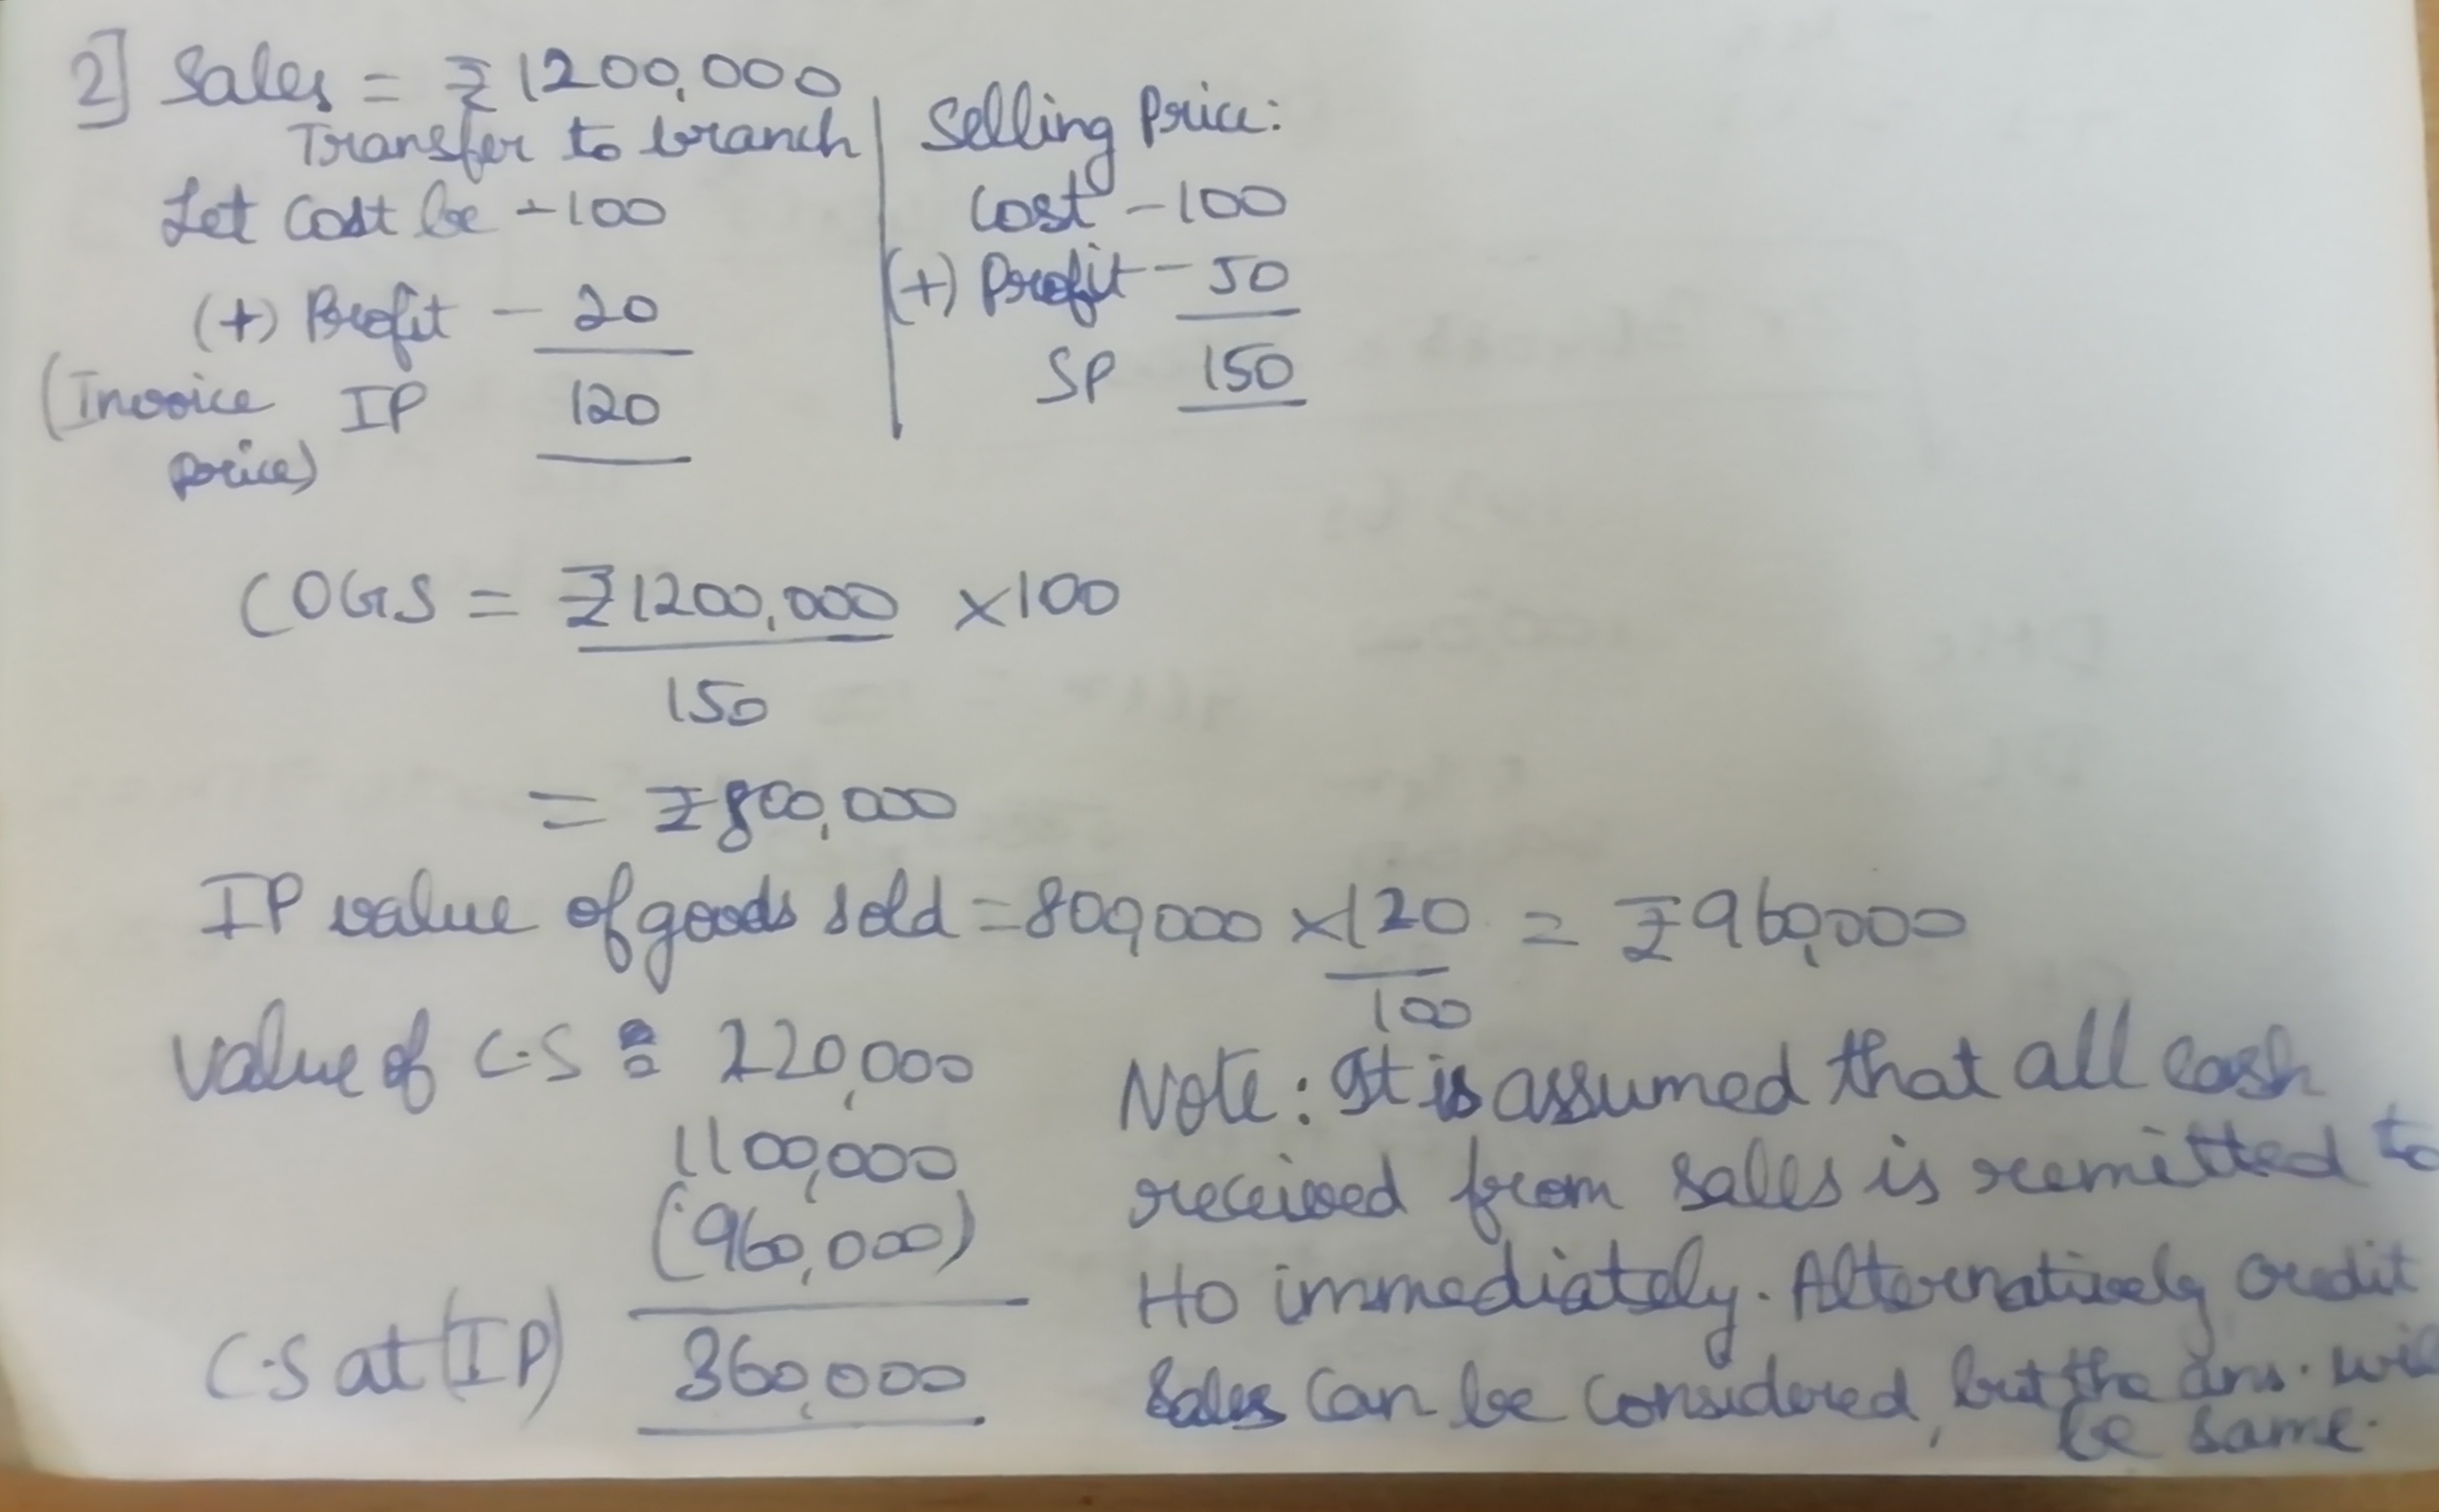 2] Sales = ₹1200,000
Transfer to branch
Let Cost be - 100
(+) Profit - 20
(Invoice IP 120
price)
Selling Price:
Cost - 100
(+) Profit - 50
SP 150
COGS = ₹1200,000 × 100
150
= ₹800,000
IP value of goods sold = 800,000 × 120 = ₹960,000
100
Value of C.S = 220,000
1100,000
(960,000)
C.S at (IP) 360,000
Note: It is assumed that all cash
received from sales is remitted to
HO immediately. Alternatively credit
Sales can be considered, but the ans. will
be same.